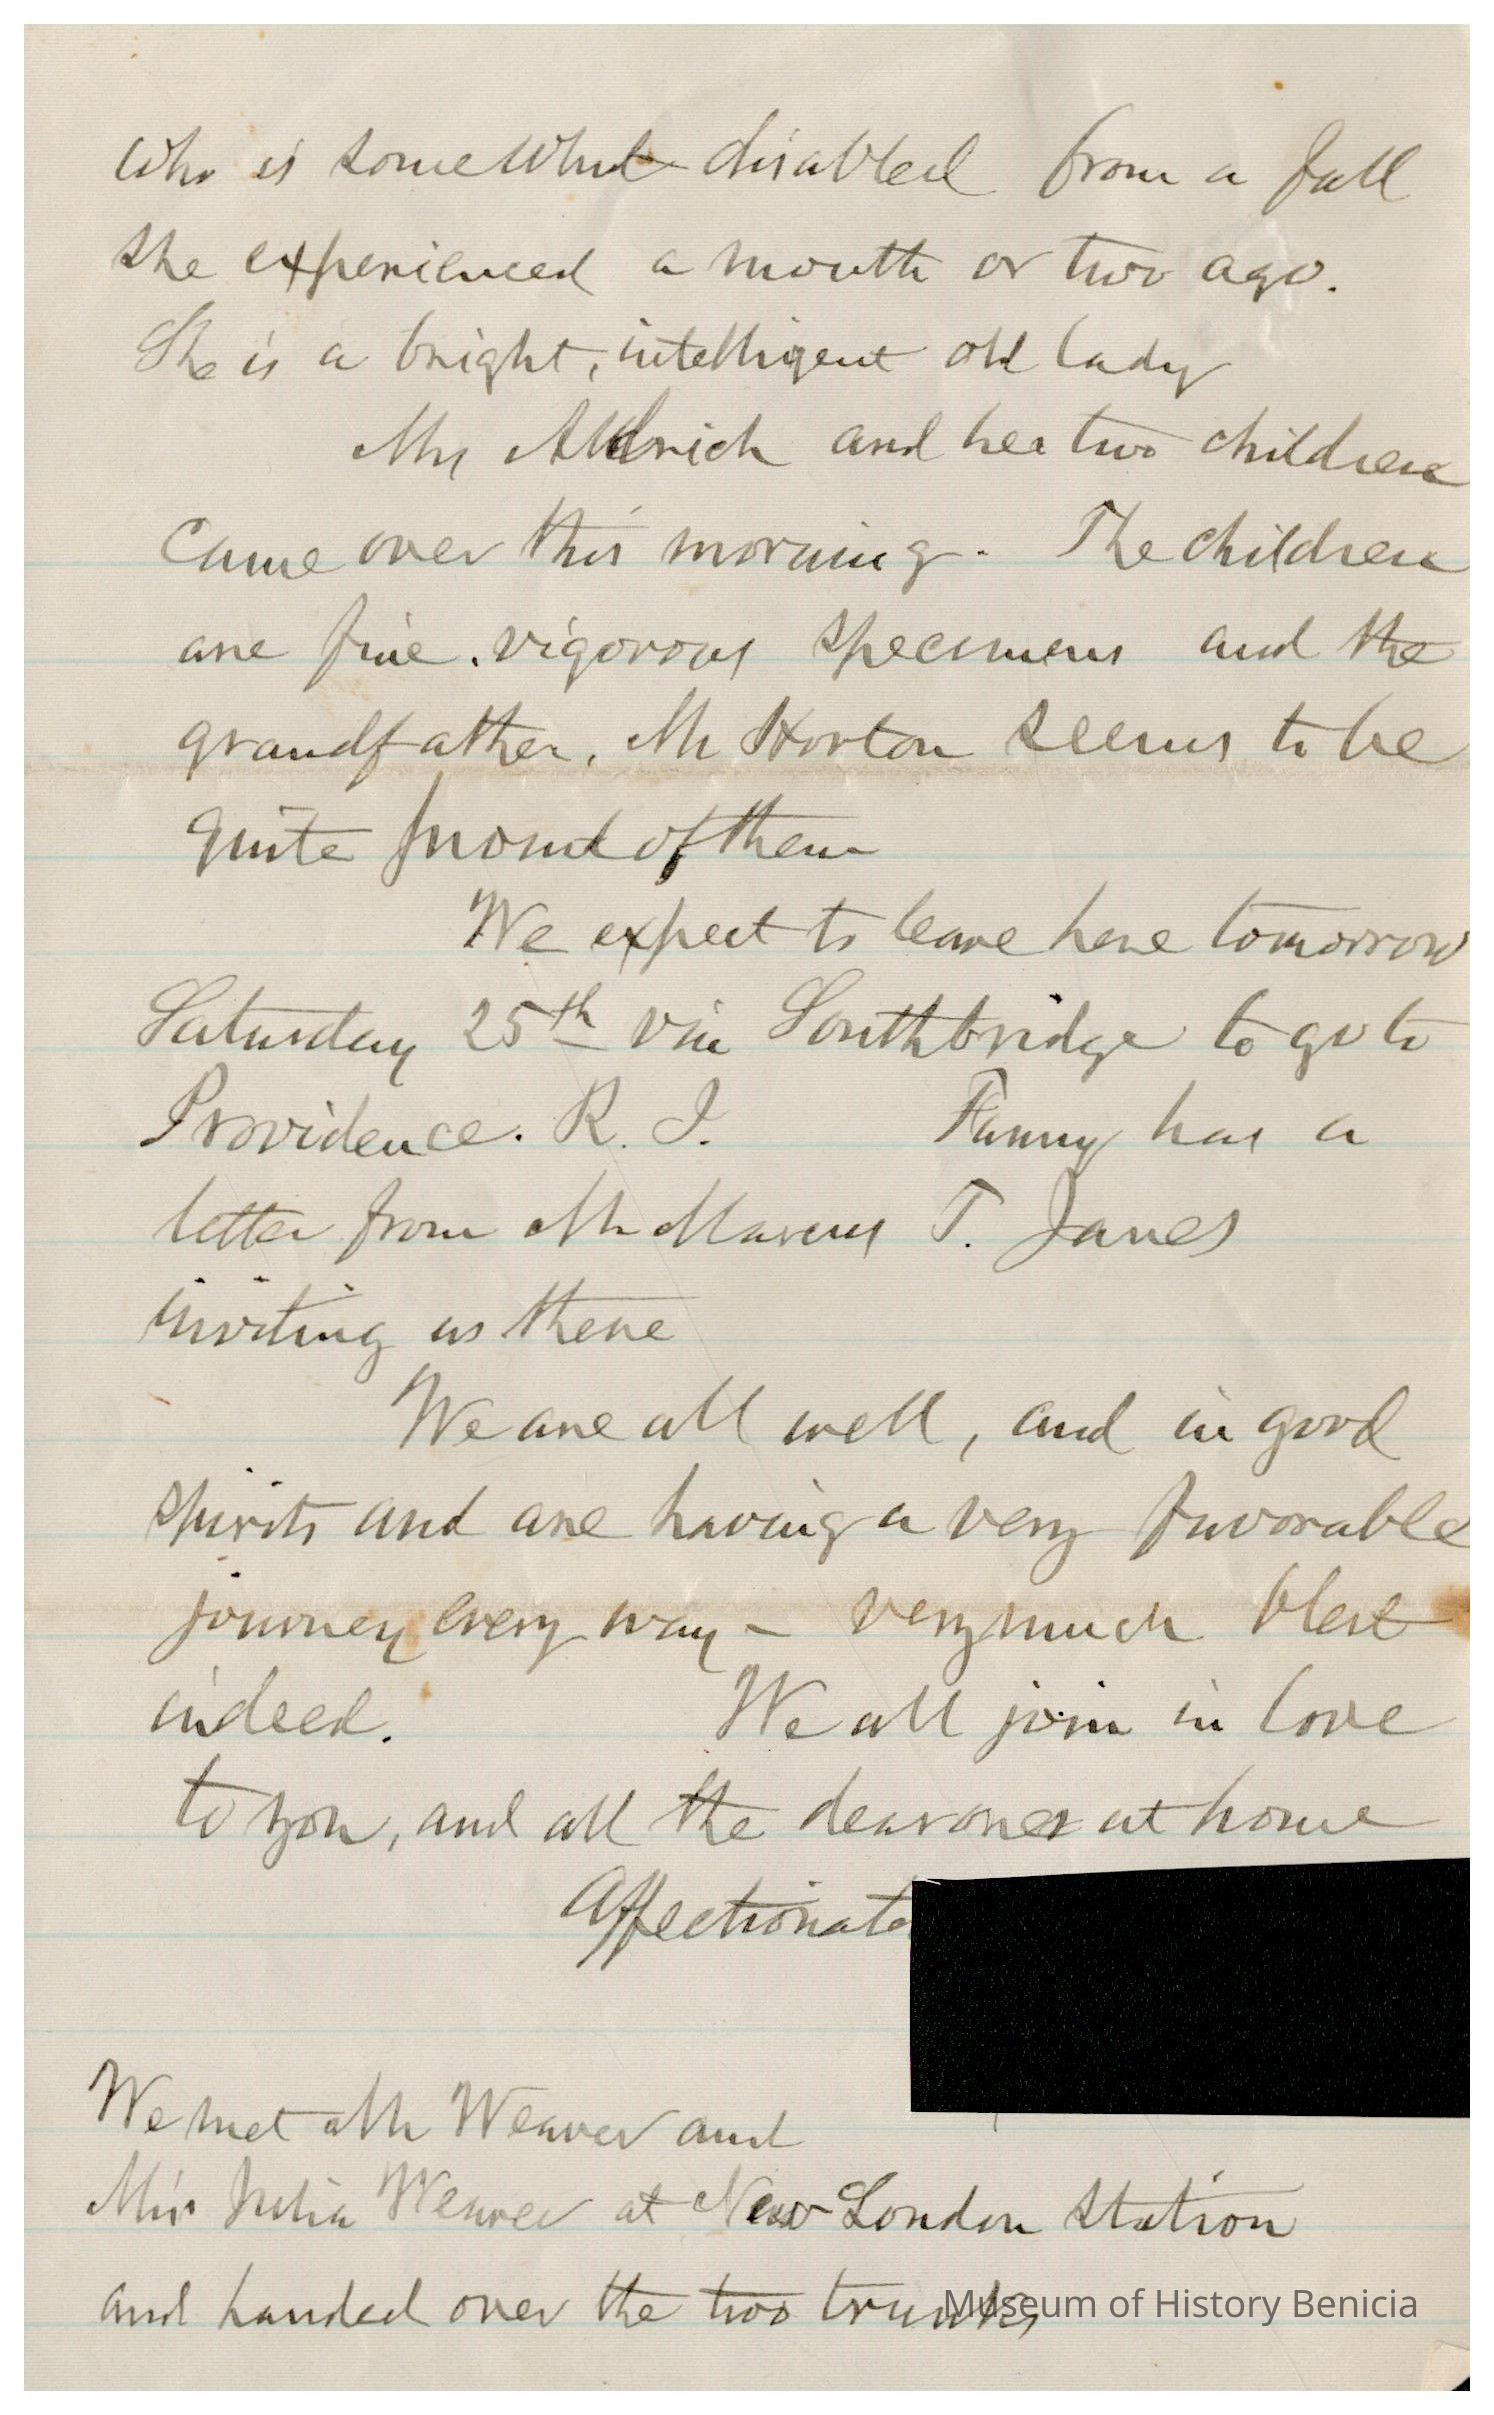 who is somewhat disabled from a fall
she experienced a month or two ago.
She is a bright, intelligent old lady
Mrs Aldrich and her two children
came over this morning. The children
are fine. vigorous specimens and the
grandfather, Mr Horton seems to be
quite proud of them
We expect to leave here tomorrow
Saturday 25th via Southbridge to go to
Providence. R. I. Fanny has a
letter from Mr Marcus T. Janes
inviting us there
We are all well, and in good
spirits and are having a very favorable
journey every way – very much blest
indeed. We all join in love
to you, and all the dear ones at home
Affectionate
We met Mr Weaver and
Miss Julia Weaver at New London Station
and handed over the two trunks
Museum of History Benicia